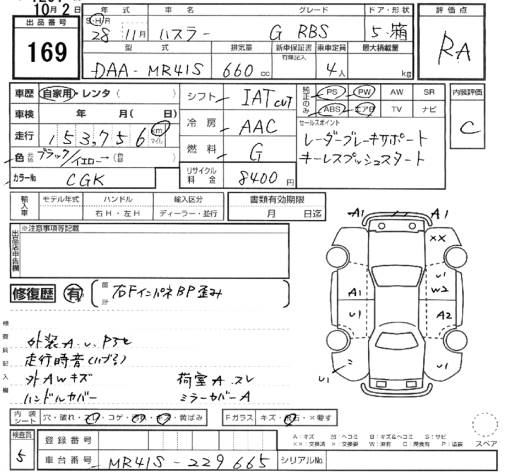 10月2日
出品番号
169
年式 車名 グレード ドア・形状
S・H/R 28年 11月 ハスラー G RBS 5・箱
型式 排気量 新車保証書 乗車定員 最大積載量
有無記入
DAA-MR41S 660cc 4人 kg
評価点
RA
車歴 自家用・レンタ( )
車検 年 月( 日)
走行 153,756 km マイル
色 元色 ブラック/イエロー→(色 )
カラーNo CGK
シフト IAT CVT
冷房 AAC
燃料 G
リサイクル料金 8400円
純正のみ
PS PW AW SR
ABS エアB TV ナビ
セールスポイント
レーダーブレーキサポート
キーレスプッシュスタート
内装評価
C
輸入車 モデル年式 ハンドル 輸入区分
年 右H・左H ディーラー・並行
書類有効期限
月 日迄
※注意事項等記載
出品店申告欄
修復歴 有
箇所 右Fインパネ BP歪み
検査員記入欄
外装A.U.P3セ
走行時音(ハブ)
外AWキズ 荷室A.スレ
ハンドルカバー ミラーカバーA
A1 A1
XX
U1
A1 W2
U1 A2
U1 U1
内装シート 穴・破れ・コゲ・黄ばみ
Fガラス キズ・石・×要す
A:キズ U:ヘコミ B:キズ&ヘコミ S:サビ
××:交換済 ×:交換要 W:波有 C:腐食有 P:塗装
スペア
検査員 5
登録番号
車台番号 MR41S-229665 シリアルNo.